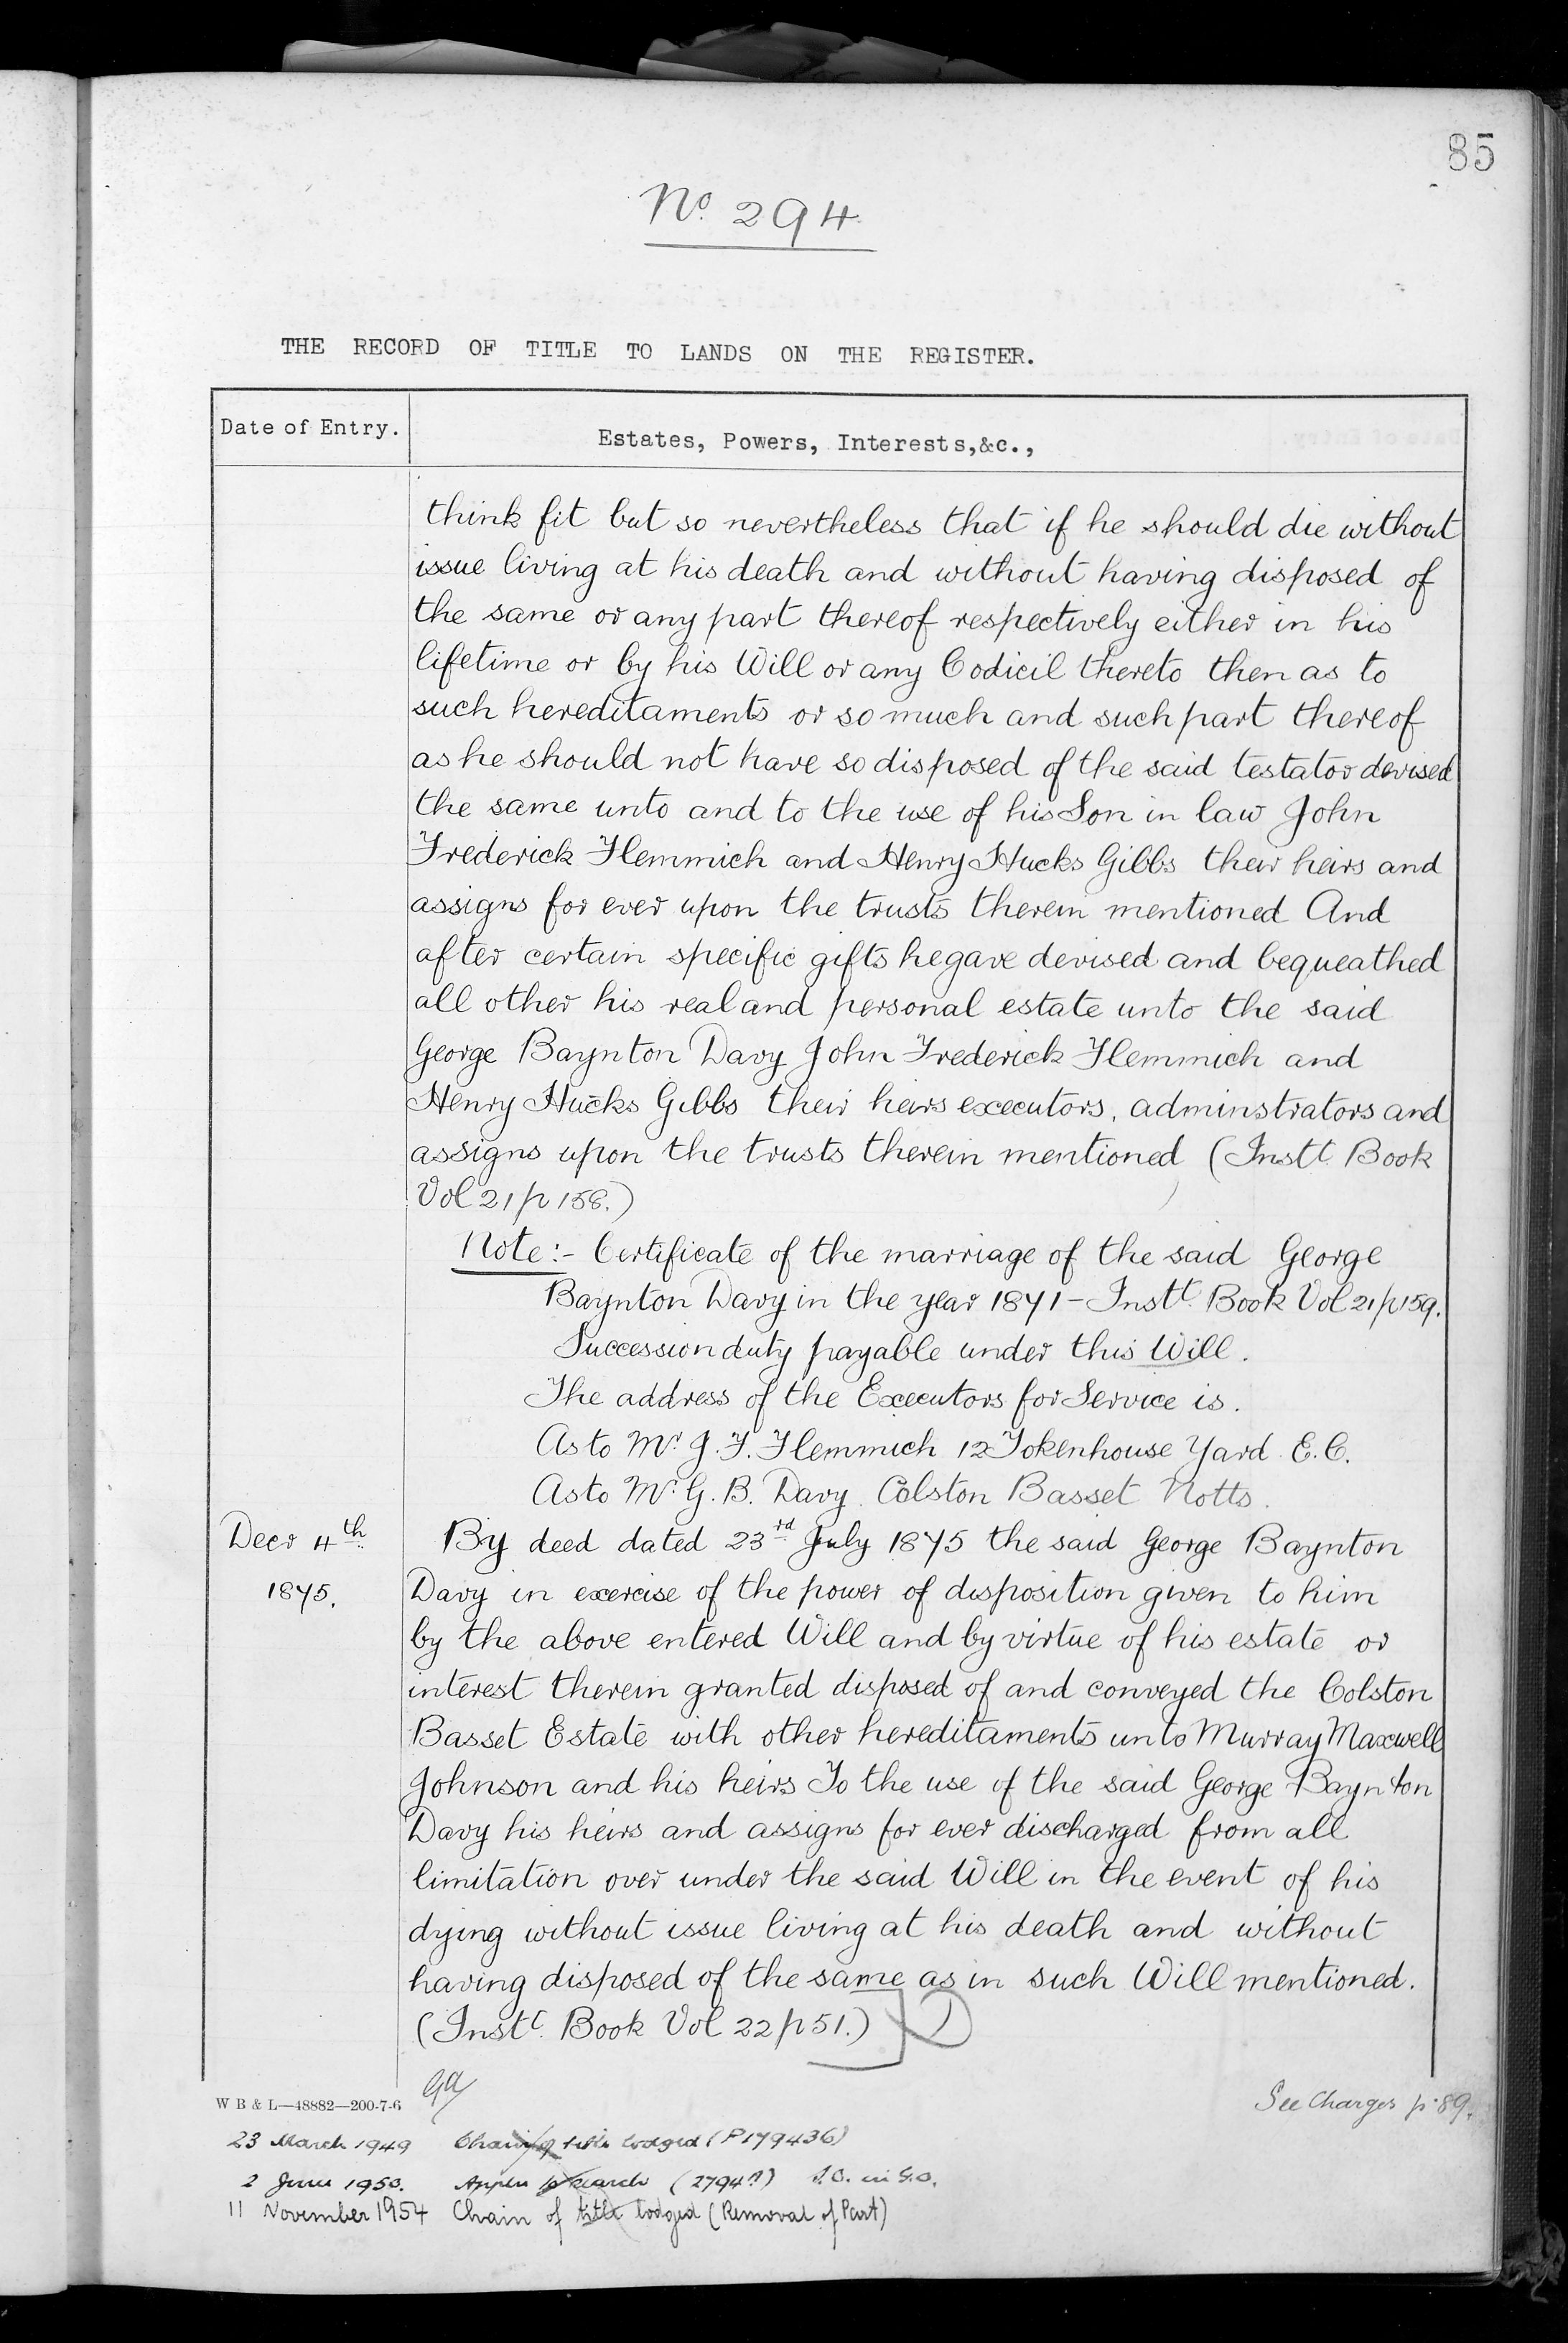 85
No. 294
THE RECORD OF TITLE TO LANDS ON THE REGISTER.
Date of Entry.
Estates, Powers, Interests,&c.,
think fit but so nevertheless that if he should die without
issue living at his death and without having disposed of
the same or any part thereof respectively either in his
lifetime or by his Will or any Codicil thereto then as to
such hereditaments or so much and such part thereof
as he should not have so disposed of the said testator devised
the same unto and to the use of his Son in law John
Frederick Flemmich and Henry Hucks Gibbs their heirs and
assigns for ever upon the trusts therein mentioned And
after certain specific gifts he gave devised and bequeathed
all other his real and personal estate unto the said
George Baynton Davy John Frederick Flemmich and
Henry Hucks Gibbs their heirs executors, adminstrators and
assigns upon the trusts therein mentioned (Instt. Book
Vol 21 p 158.)
Note:- Certificate of the marriage of the said George
Baynton Davy in the year 1871 - Instt. Book Vol 21 p 159.
Succession duty payable under this Will.
The address of the Executors for Service is.
As to Mr. J. F. Flemmich 12 Tokenhouse Yard E.C.
As to Mr. G. B. Davy Colston Basset Notts.
Decr 4th.
1875.
By deed dated 23rd. July 1875 the said George Baynton
Davy in exercise of the power of disposition given to him
by the above entered Will and by virtue of his estate or
interest therein granted disposed of and conveyed the Colston
Basset Estate with other hereditaments unto Murray Maxwell
Johnson and his heirs To the use of the said George Baynton
Davy his heirs and assigns for ever discharged from all
limitation over under the said Will in the event of his
dying without issue living at his death and without
having disposed of the same as in such Will mentioned.
(Instt. Book Vol 22 p 51.)
W B & L—48882—200-7-6
See Charges p. 89.
23 March 1949 Chain of title lodged (P179436)
2 June 1950. Appln to search
11 November 1954 Chain of title lodged (Removal of Part)